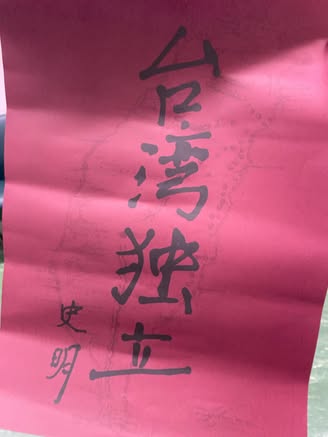 台湾独立
史明